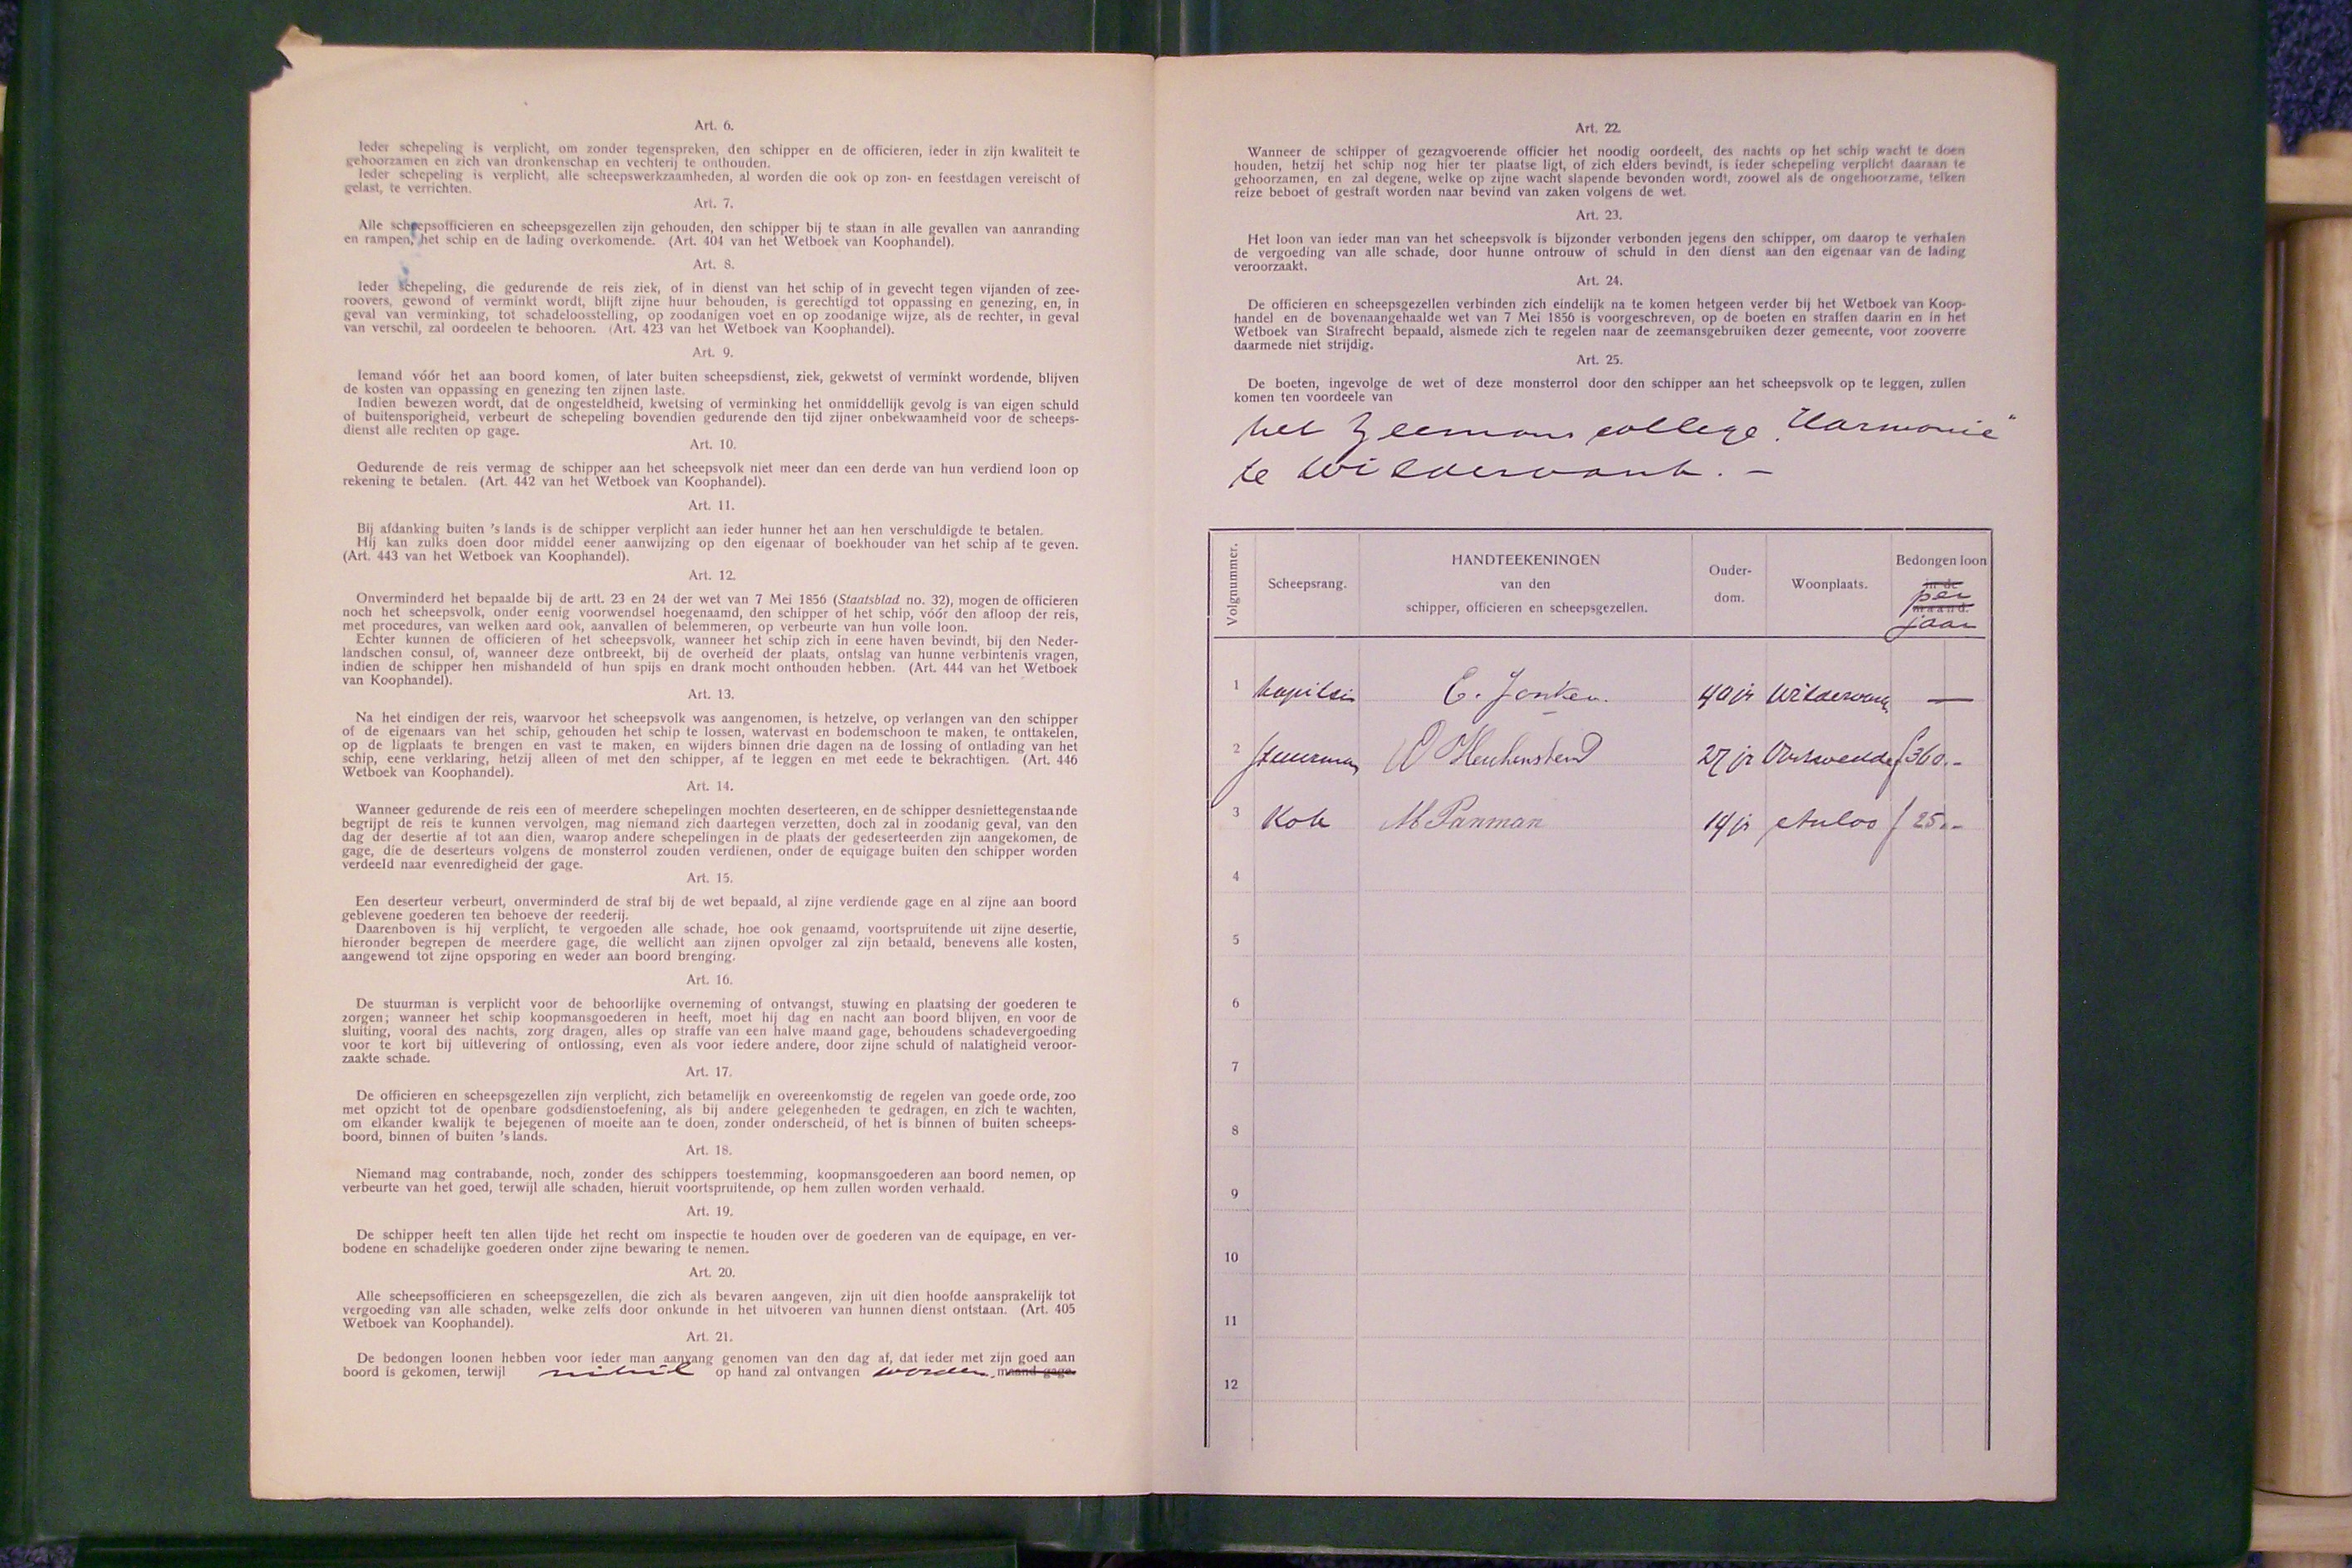 Art. 6.
Ieder schepeling is verplicht, om zonder tegenspreken, den schipper en de officieren, ieder in zijn kwaliteit te
gehoorzamen en zich van dronkenschap en vechterij te onthouden.
Ieder schepeling is verplicht, alle scheepswerkzaamheden, al worden die ook op zon- en feestdagen vereischt of
gelast, te verrichten.
Art. 7.
Alle scheepsofficieren en scheepsgezellen zijn gehouden, den schipper bij te staan in alle gevallen van aanranding
en rampen, het schip en de lading overkomende. (Art. 404 van het Wetboek van Koophandel).
Art. 8.
Ieder schepeling, die gedurende de reis ziek, of in dienst van het schip of in gevecht tegen vijanden of zee-
roovers, gewond of verminkt wordt, blijft zijne huur behouden, is gerechtigd tot oppassing en genezing, en, in
geval van verminking, tot schadeloosstelling, op zoodanigen voet en op zoodanige wijze, als de rechter, in geval
van verschil, zal oordeelen te behooren. (Art. 423 van het Wetboek van Koophandel).
Art. 9.
Iemand vóór het aan boord komen, of later buiten scheepsdienst, ziek, gekwetst of verminkt wordende, blijven
de kosten van oppassing en genezing ten zijnen laste.
Indien bewezen wordt, dat de ongesteldheid, kwetsing of verminking het onmiddellijk gevolg is van eigen schuld
of buitensporigheid, verbeurt de schepeling bovendien gedurende den tijd zijner onbekwaamheid voor de scheeps-
dienst alle rechten op gage.
Art. 10.
Gedurende de reis vermag de schipper aan het scheepsvolk niet meer dan een derde van hun verdiend loon op
rekening te betalen. (Art. 442 van het Wetboek van Koophandel).
Art. 11.
Bij afdanking buiten 's lands is de schipper verplicht aan ieder hunner het aan hen verschuldigde te betalen.
Hij kan zulks doen door middel eener aanwijzing op den eigenaar of boekhouder van het schip af te geven.
(Art. 443 van het Wetboek van Koophandel).
Art. 12.
Onverminderd het bepaalde bij de artt. 23 en 24 der wet van 7 Mei 1856 (Staatsblad no. 32), mogen de officieren
noch het scheepsvolk, onder eenig voorwendsel hoegenaamd, den schipper of het schip, vóór den afloop der reis,
met procedures, van welken aard ook, aanvallen of belemmeren, op verbeurte van hun volle loon.
Echter kunnen de officieren of het scheepsvolk, wanneer het schip zich in eene haven bevindt, bij den Neder-
landschen consul, of, wanneer deze ontbreekt, bij de overheid der plaats, ontslag van hunne verbintenis vragen,
indien de schipper hen mishandeld of hun spijs en drank mocht onthouden hebben. (Art. 444 van het Wetboek
van Koophandel).
Art. 13.
Na het eindigen der reis, waarvoor het scheepsvolk was aangenomen, is hetzelve, op verlangen van den schipper
of de eigenaars van het schip, gehouden het schip te lossen, watervast en bodemschoon te maken, te onttakelen,
op de ligplaats te brengen en vast te maken, en wijders binnen drie dagen na de lossing of ontlading van het
schip, eene verklaring, hetzij alleen of met den schipper, af te leggen en met eede te bekrachtigen. (Art. 446
Wetboek van Koophandel).
Art. 14.
Wanneer gedurende de reis een of meerdere schepelingen mochten deserteeren, en de schipper desniettegenstaande
begrijpt de reis te kunnen vervolgen, mag niemand zich daartegen verzetten, doch zal in zoodanig geval, van den
dag der desertie af tot aan dien, waarop andere schepelingen in de plaats der gedeserteerden zijn aangekomen, de
gage, die de deserteurs volgens de monsterrol zouden verdienen, onder de equigage buiten den schipper worden
verdeeld naar evenredigheid der gage.
Art. 15.
Een deserteur verbeurt, onverminderd de straf bij de wet bepaald, al zijne verdiende gage en al zijne aan boord
geblevene goederen ten behoeve der reederij.
Daarenboven is hij verplicht, te vergoeden alle schade, hoe ook genaamd, voortspruitende uit zijne desertie,
hieronder begrepen de meerdere gage, die wellicht aan zijnen opvolger zal zijn betaald, benevens alle kosten,
aangewend tot zijne opsporing en weder aan boord brenging.
Art. 16.
De stuurman is verplicht voor de behoorlijke overneming of ontvangst, stuwing en plaatsing der goederen te
zorgen; wanneer het schip koopmansgoederen in heeft, moet hij dag en nacht aan boord blijven, en voor de
sluiting, vooral des nachts, zorg dragen, alles op straffe van een halve maand gage, behoudens schadevergoeding
voor te kort bij uitlevering of ontlossing, even als voor iedere andere, door zijne schuld of nalatigheid veroor-
zaakte schade.
Art. 17.
De officieren en scheepsgezellen zijn verplicht, zich betamelijk en overeenkomstig de regelen van goede orde, zoo
met opzicht tot de openbare godsdienstoefening, als bij andere gelegenheden te gedragen, en zich te wachten,
om elkander kwalijk te bejegenen of moeite aan te doen, zonder onderscheid, of het is binnen of buiten scheeps-
boord, binnen of buiten 's lands.
Art. 18.
Niemand mag contrabande, noch, zonder des schippers toestemming, koopmansgoederen aan boord nemen, op
verbeurte van het goed, terwijl alle schaden, hieruit voortspruitende, op hem zullen worden verhaald.
Art. 19.
De schipper heeft ten allen tijde het recht om inspectie te houden over de goederen van de equipage, en ver-
bodene en schadelijke goederen onder zijne bewaring te nemen.
Art. 20.
Alle scheepsofficieren en scheepsgezellen, die zich als bevaren aangeven, zijn uit dien hoofde aansprakelijk tot
vergoeding van alle schaden, welke zelfs door onkunde in het uitvoeren van hunnen dienst ontstaan. (Art. 405
Wetboek van Koophandel).
Art. 21.
De bedongen loonen hebben voor ieder man aanvang genomen van den dag af, dat ieder met zijn goed aan
boord is gekomen, terwijl nihil op hand zal ontvangen worden, maand gage.
Art. 22.
Wanneer de schipper of gezagvoerende officier het noodig oordeelt, des nachts op het schip wacht te doen
houden, hetzij het schip nog hier ter plaatse ligt, of zich elders bevindt, is ieder schepeling verplicht daaraan te
gehoorzamen, en zal degene, welke op zijne wacht slapende bevonden wordt, zoowel als de ongehoorzame, telken
reize beboet of gestraft worden naar bevind van zaken volgens de wet.
Art. 23.
Het loon van ieder man van het scheepsvolk is bijzonder verbonden jegens den schipper, om daarop te verhalen
de vergoeding van alle schade, door hunne ontrouw of schuld in den dienst aan den eigenaar van de lading
veroorzaakt.
Art. 24.
De officieren en scheepsgezellen verbinden zich eindelijk na te komen hetgeen verder bij het Wetboek van Koop-
handel en de bovenaangehaalde wet van 7 Mei 1856 is voorgeschreven, op de boeten en straffen daarin en in het
Wetboek van Strafrecht bepaald, alsmede zich te regelen naar de zeemansgebruiken dezer gemeente, voor zooverre
daarmede niet strijdig.
Art. 25.
De boeten, ingevolge de wet of deze monsterrol door den schipper aan het scheepsvolk op te leggen, zullen
komen ten voordeele van
het Zeemans college "Harmonie"
te Wildervank. -
Volgnummer.
Scheepsrang.
HANDTEEKENINGEN
van den
schipper, officieren en scheepsgezellen.
Ouder-
dom.
Woonplaats.
Bedongen loon
in de
per
maand.
jaar
1 kapitein E. Jonker. 40 jr Wildervank —
2 Stuurman 27 jr f 360.-
3 Kok M Panman 14 jr f 25.-
4
5
6
7
8
9
10
11
12